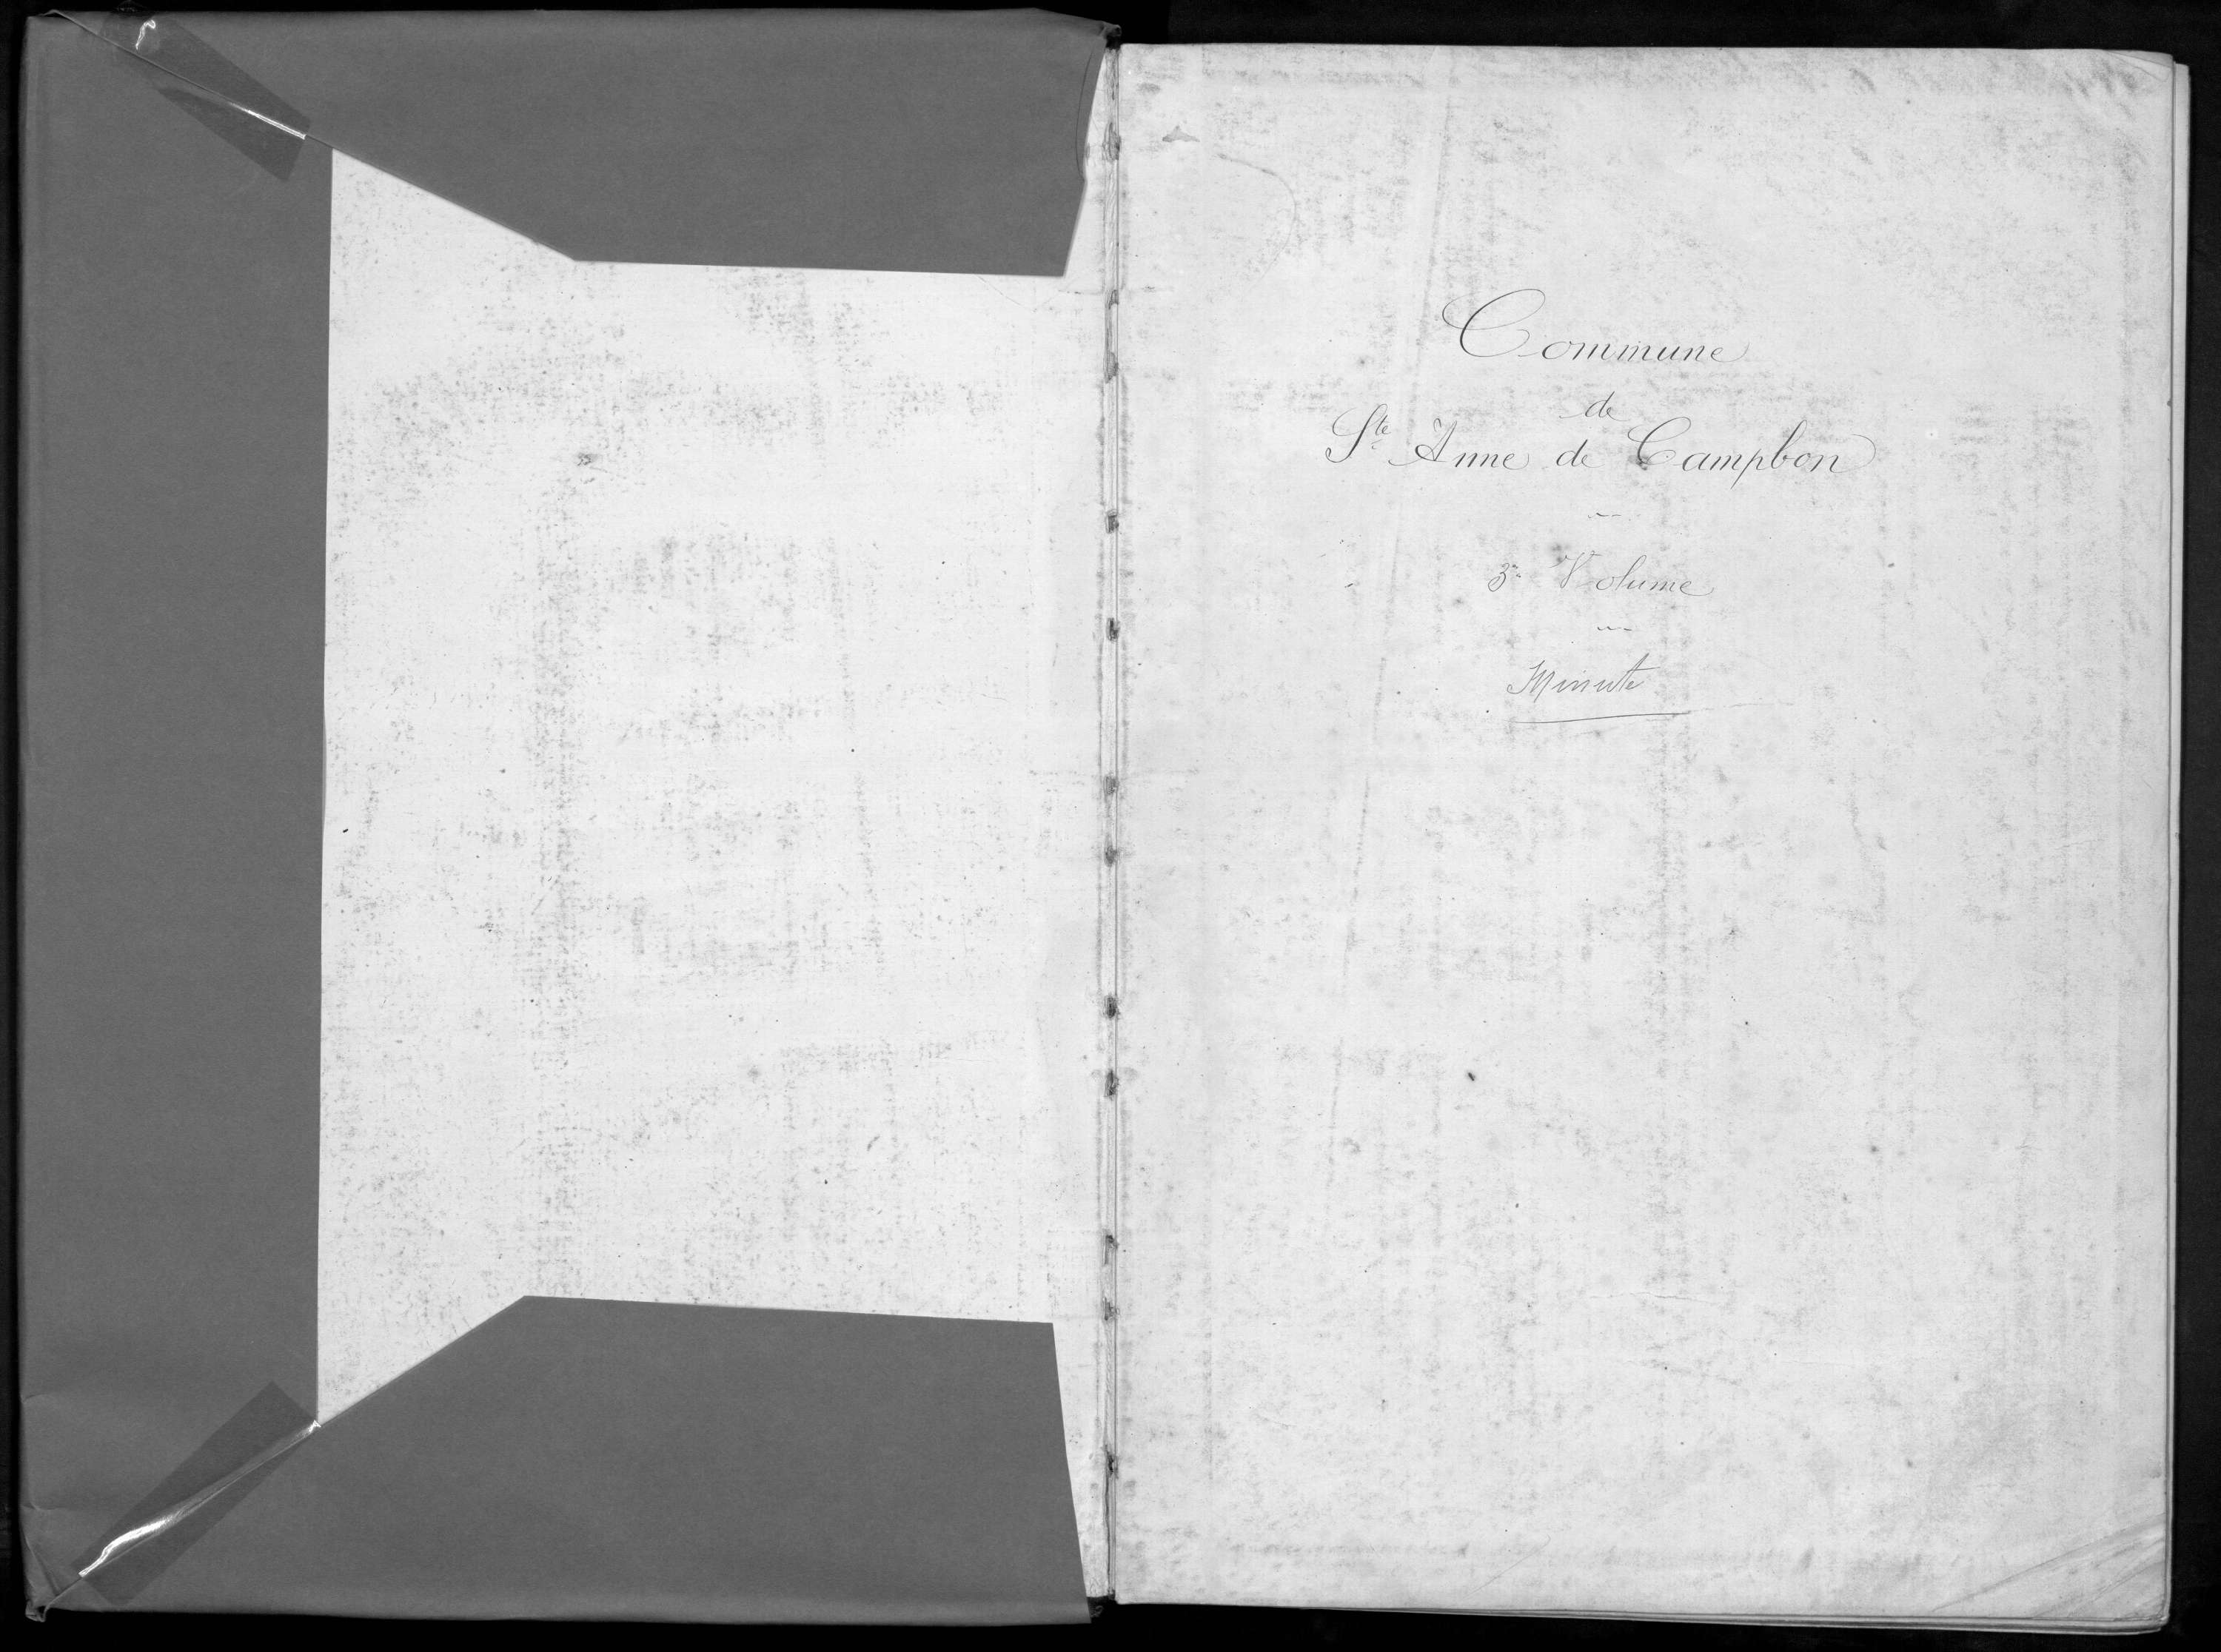 Commune
de
Ste Anne de Campbon
3e Volume
Minute